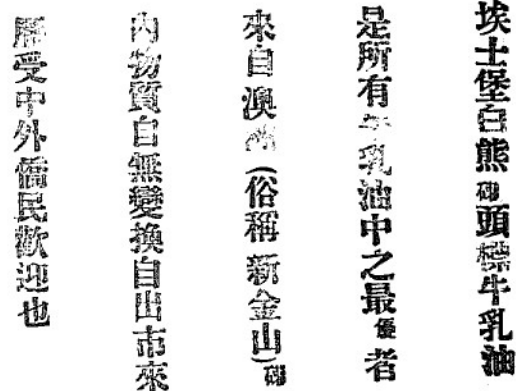 埃士堡白熊頭標牛乳油
是所有牛乳油中之最優者
來自澳洲(俗稱新金山)
內物質自無變換自出市來
受中外僑民歡迎也